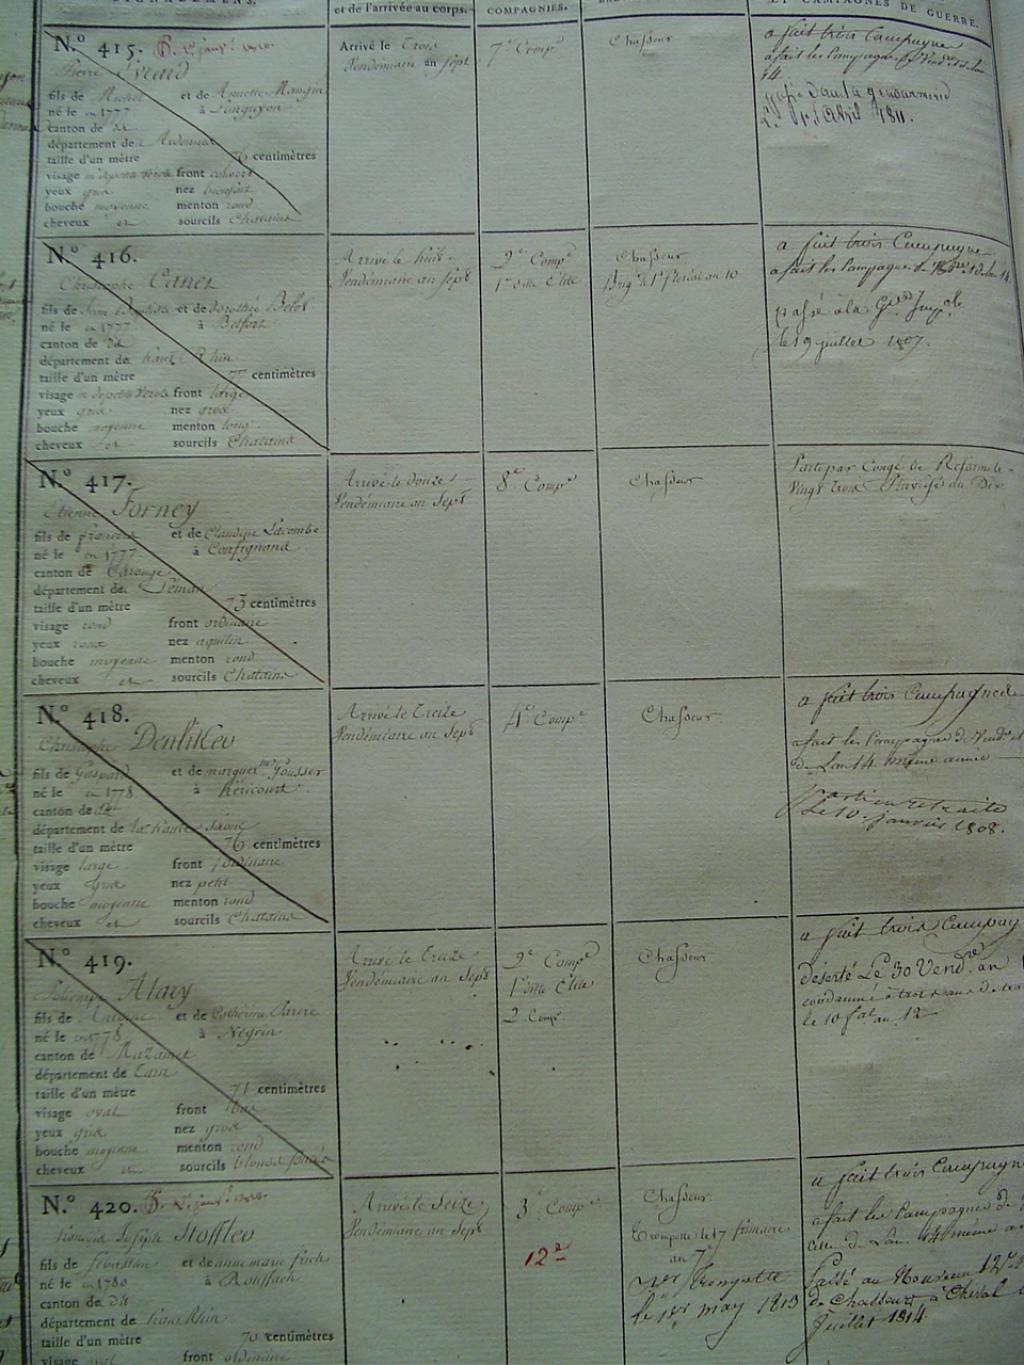 et de l'arrivée au corps.
COMPAGNIES.
CAMPAGNES DE GUERRE.
N.º 415.
Pierre Evrard
fils de Michel et de Annette Mangin
né le en 1777 à Longuyon
canton de
département de Ardennes
taille d'un mètre 76 centimètres
visage front couvert
yeux gris nez bienfait
bouche moyenne menton rond
cheveux et sourcils Chatains
Arrivé le Trois
Vendémiaire an Sept
7e Compe
Chasseur
a fait trois Campagne
a fait les Campagnes
14
passé dans la gendarmerie
le 1er avril 1811.
N.º 416.
Christophe Canet
fils de Jean Baptiste et de dorothée Belot
né le en 1777 à Belfort
canton de
département de haut Rhin
taille d'un mètre 77 centimètres
visage m de petite Verole front large
yeux gris nez gros
bouche moyenne menton long
cheveux et sourcils Chatains
Arrivé le huit
Vendémiaire an Sept
9e Compe
1re ou Elite
Chasseur
Brig. le 1er floréal an 10
a fait trois Campagne
a fait les Campagnes de
passé à la
le 19 juillet 1807.
N.º 417.
Etienne Forney
fils de françois et de Claudine Lacombe
né le en 1777 à Confignand
canton de Carouge
département de Léman
taille d'un mètre 73 centimètres
visage rond front ordinaire
yeux roux nez aquilin
bouche moyenne menton rond
cheveux et sourcils Chatains
Arrivé le douze
Vendémiaire an Sept
8e Compe
Chasseur
Parti par Congé de Réforme le
Vingt trois Pluviose an Dix
N.º 418.
Christophe
fils de Gaspard et de
né le en 1778 à héricourt
canton de
département de la haute Saone
taille d'un mètre 76 centimètres
visage large front ordinaire
yeux gris nez petit
bouche moyenne menton rond
cheveux et sourcils Chatains
Arrivé le Treize
Vendémiaire an Sept
4e Compe
Chasseur
a fait trois Campagne
a fait les Campagnes de
de Lan 14 même année
parti en retraite
Le 10 janvier 1808.
N.º 419.
Alary
fils de Antoine et de Catherine
né le en 1778 à Négrin
canton de Mazamet
département de Tarn
taille d'un mètre 71 centimètres
visage oval front bas
yeux gris nez gros
bouche moyenne menton rond
cheveux et sourcils blonds foncés
Arrivé le Treize
Vendémiaire an Sept
9e Compe
1re ou Elite
2 Comp
Chasseur
a fait trois Campag
déserté Le 30 Vend. an
condamné à trois ans de
le 10 an 12
N.º 420.
françois Joseph
fils de Sébastien et de anne marie frich
né le en 1780 à Rouffach
canton de
département de haut Rhin
taille d'un mètre 70 centimètres
visage oval front ordinaire
Arrivé le Seize
Vendémiaire an Sept
3e Compe
12e
Chasseur
Trompette le 17 frimaire
an 7
Trompette
le 1er may 1813
a fait trois Campagn
a fait les Campagnes de
celle de Lan 14 même an
Passé au Nouveau 12e
de Chasseurs à Cheval
Juillet 1814.